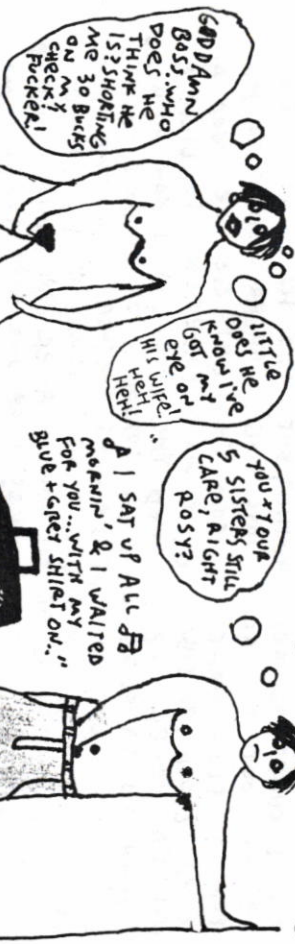 GODDAMN
BOSS..WHO
DOES HE
THINK HE
IS? SHORTING
ME 30 BUCKS
ON MY
CHECK?
FUCKER!
LITTLE
DOES HE
KNOW I'VE
GOT MY
EYE ON
HIS WIFE!
HEH
HEH!
YOU + YOUR
5 SISTERS STILL
CARE, RIGHT
ROSY?
" I SAT UP ALL
MORNIN' & I WAITED
FOR YOU... WITH MY
BLUE + GREY SHIRT ON.."